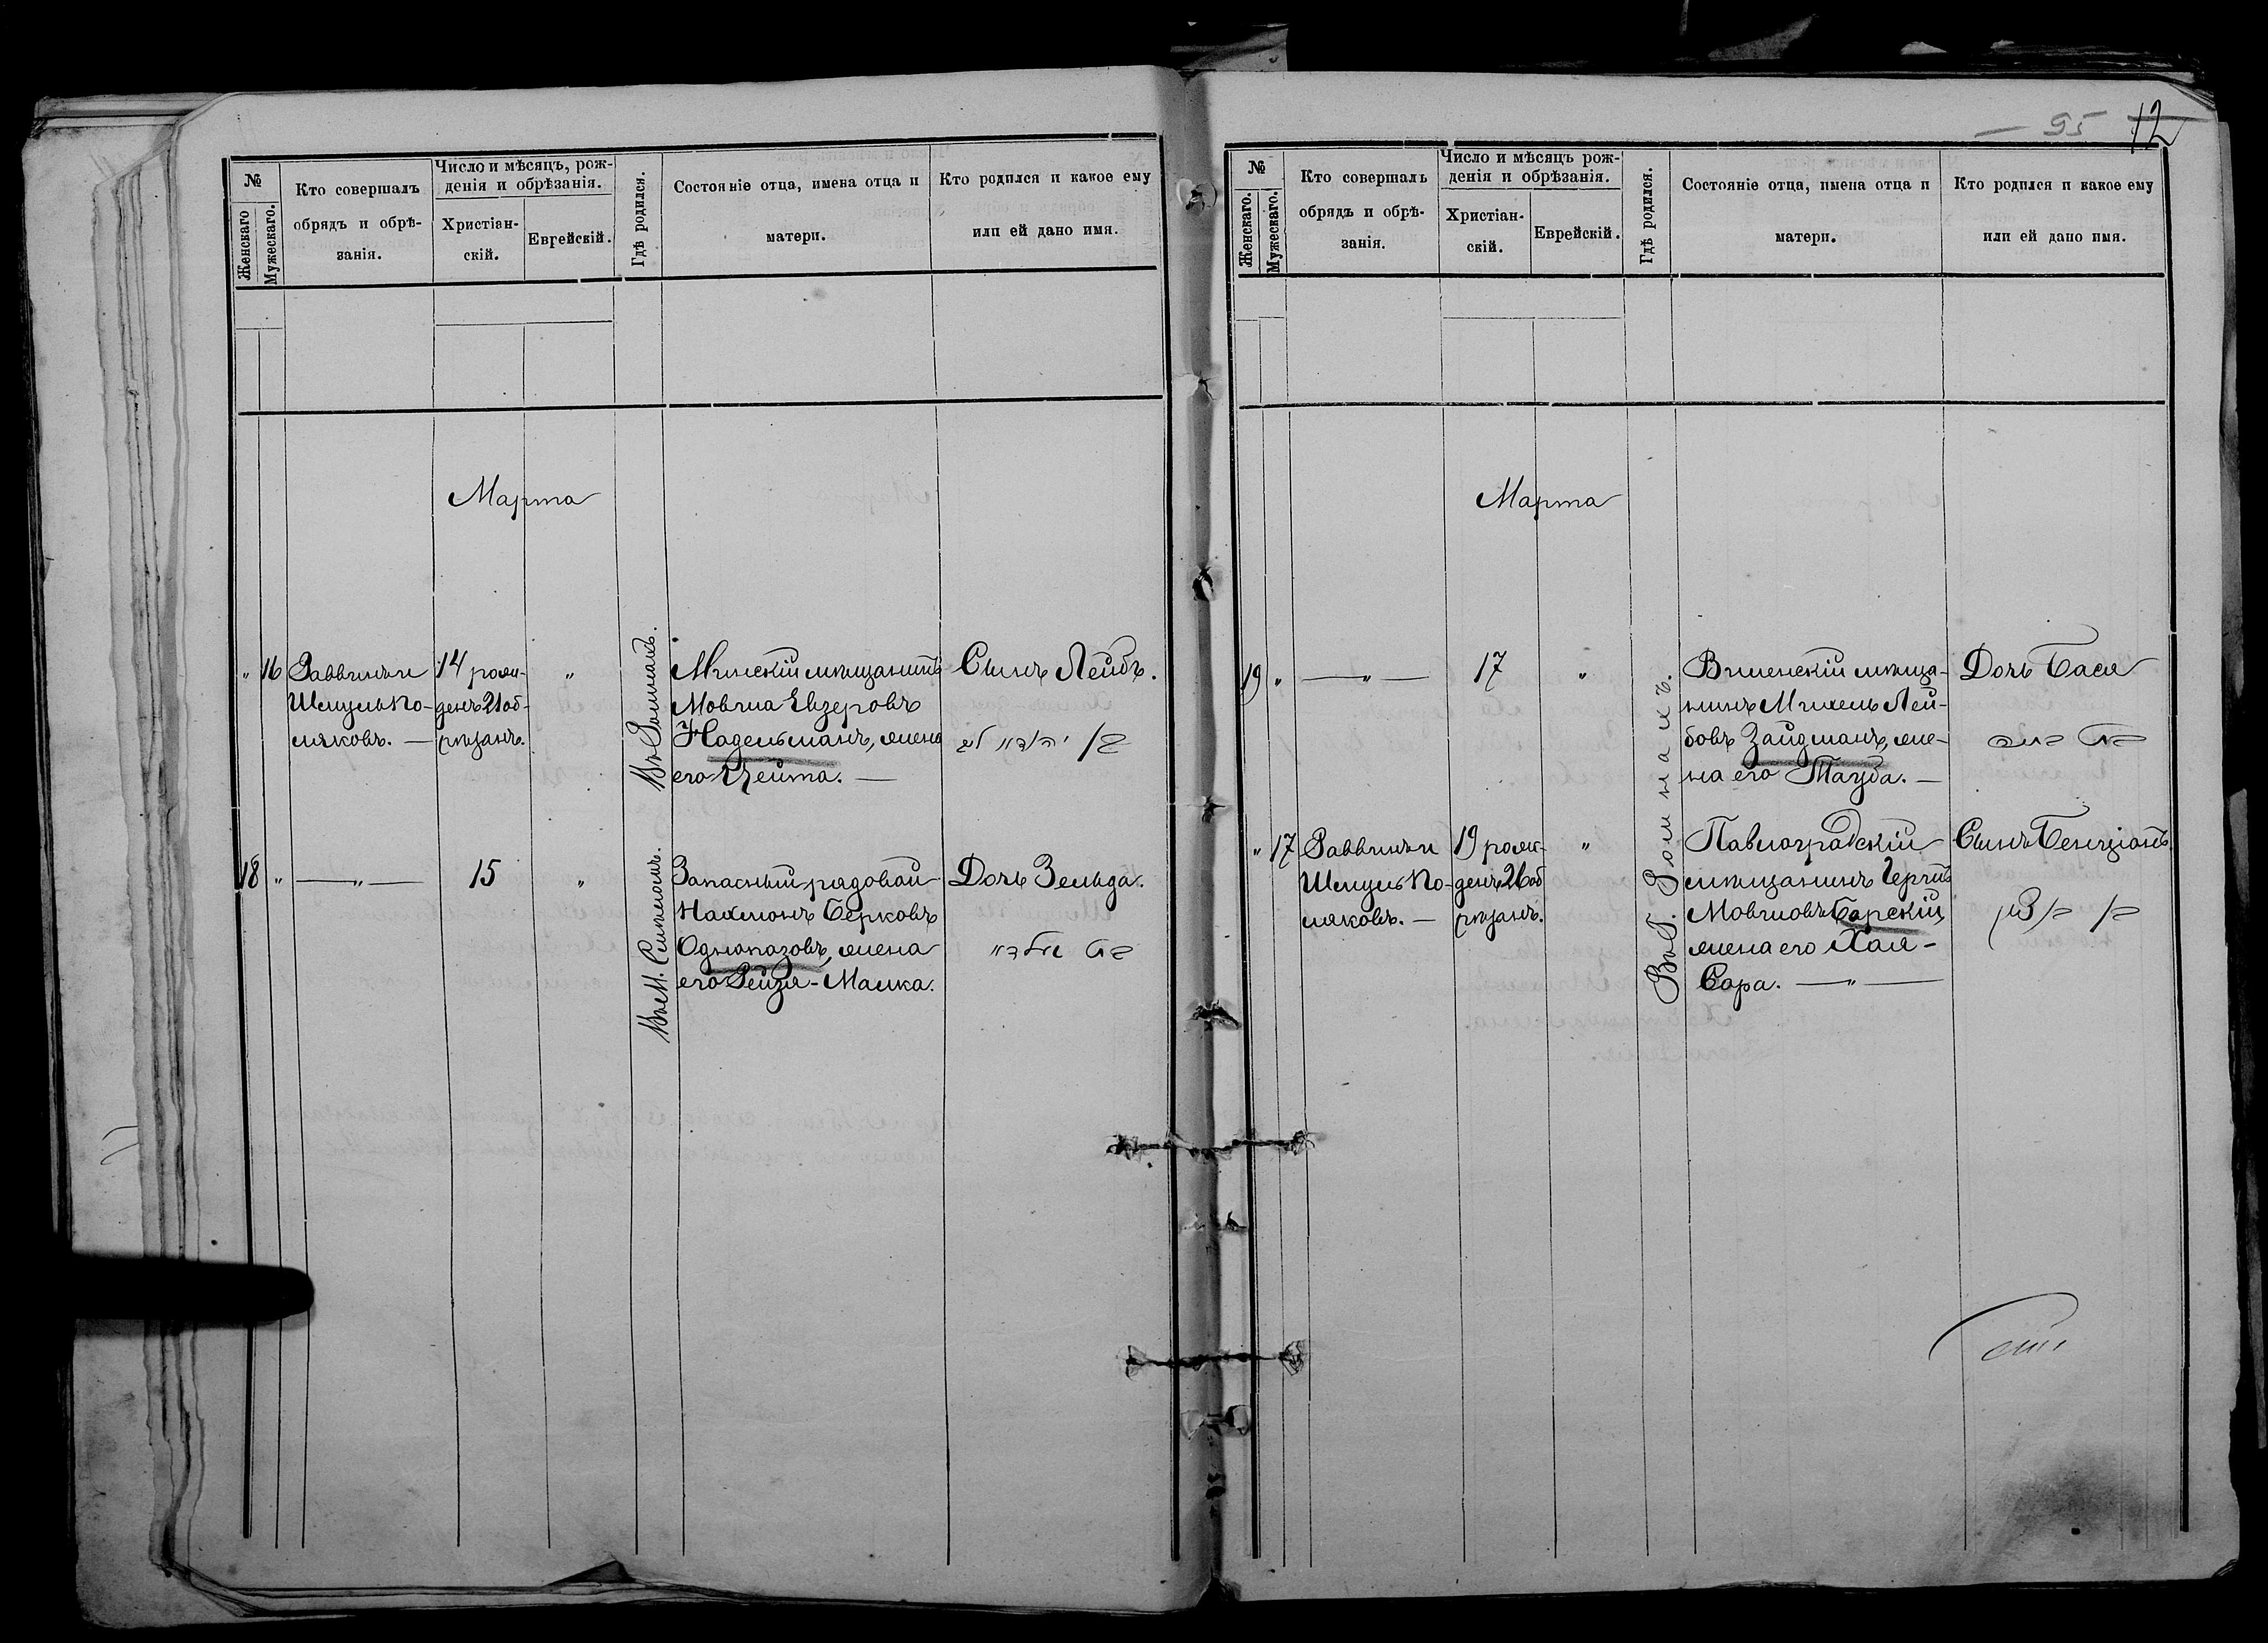 №
Женскаго
Мужескаго.
Кто совершалъ
обрядъ и обрѣ-
занія.
Число и мѣсяцъ, рож-
денія и обрѣзанія.
Христіан-
скій.
Еврейскій.
Гдѣ родился.
Состояніе отца, имена отца и
матери.
Кто родился и какое ему
или ей дано имя.
Марта
" 16
Раввинъ и
Шмуль По-
ляковъ. —
14 рож-
денъ 21 об-
рѣзанъ.
"
Въ Ромнахъ.
Минскій мѣщанинъ
Мовша Евзеровъ
Надельманъ, жена
его Цейта. —
Сынъ Лейбъ.
בן
18 "
— " —
15
"
Въ М. Смѣломъ.
Запасный рядовой
Нахманъ Берковъ
Однопозовъ, жена
его Рейзя-Малка.
Дочь Зельда.
בת
95 12
№
Женскаго.
Мужескаго.
Кто совершалъ
обрядъ и обрѣ-
занія.
Число и мѣсяцъ рож-
денія и обрѣзанія.
Христіан-
скій.
Еврейскій.
Гдѣ родился.
Состояніе отца, имена отца и
матери.
Кто родился и какое ему
или ей дано имя.
Марта
19 "
— " —
17
"
Въ Г. Ромнахъ.
Виленскій мѣща-
нинъ Михель Лей-
бовъ Зайдманъ, же-
на его Тауба. —
Дочь Бася
בת באסיא
" 17
Раввинъ и
Шмуль По-
ляковъ. —
19 рож-
денъ 26 об
рѣзанъ.
"
Павлоградскій
мѣщанинъ Герш
Мовшовъ Барскій,
жена его Хая-
Сара. — " —
Сынъ Бенціонъ
בן בן ציון